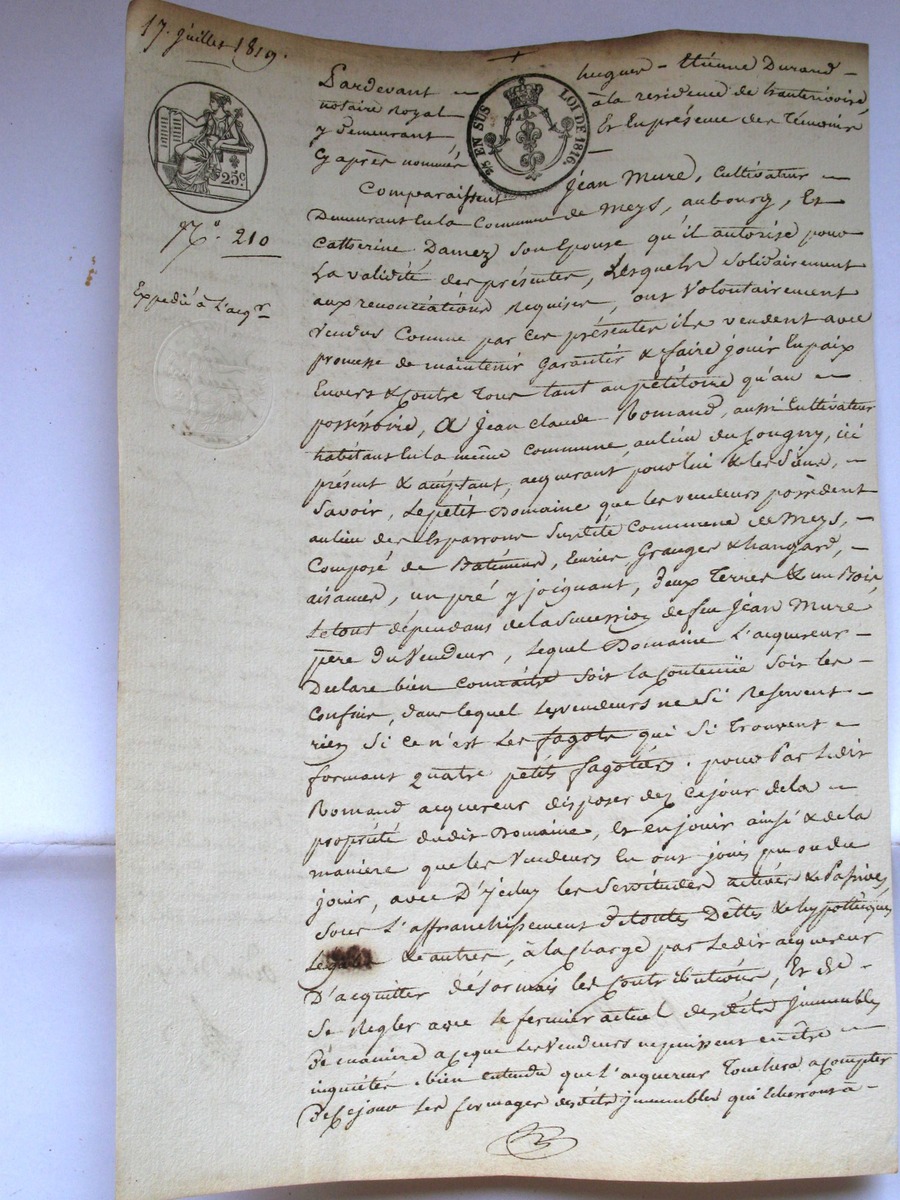 17. juillet 1819.
Pardevant hugues - Etienne Durand -
notaire Royal à la residence de hauterivoire,
y demeurant, Et En présence des témoins
Cy après nommés -
2/5 EN SUS LOI DE 1816.
25c.
N.º 210
Expedié à L'acqr
Comparaissent Jean Mure, Cultivateur -
Demeurant En la Commune de Meys, au bourg, Et
Catherine Damez son Epouse qu'il autorise pour
La validité des présentes, Lesquels solidairement
aux renonciations Requises, ont Volontairement
Vendus Comme par ces présentes ils vendent avec
promesse de maintenir Garantir & faire jouir En paix
Envers & Contre Tous tant au pétitoire qu'au -
possessoire, A Jean Claude Romand, aussi Cultivateur
habitant En la même Commune, au lieu du Cougny, ici
présent & acceptant, acquerant pour lui & les Siens, -
Savoir, Le petit Domaine que les vendeurs possèdent
au lieu des Esparrons susdite Commune de Meys, -
Composé de Batimens, Ecuries Granges & hangard, -
aisances, un pré y joignant, deux Terres & un Bois
Le tout dépendans de la succession de feu Jean Mure
père du Vendeur, Lequel Domaine L'acquereur -
Declare bien Connaitre soit la Contenüe soit les -
Confins, dans lequel Les vendeurs ne si Reservent -
rien si ce n'est Les fagots qui si trouvent -
formant quatre petits fagotiers. pour Par Ledit
Romand acquereur disposer dez Ce jour de la -
propriété dudit Domaine, Et en jouir ainsi & de la
maniere que les Vendeurs En ont jouis pu ou du
jouir, avec D'icelui les servitudes actives & Passives,
sous L'affranchissement de toutes Dettes & hypothèques
& autres, à la charge par Ledit acquereur
D'acquitter désormais les Contributions, Et de -
Se Regler avec Le fermier actuel desdits Immeubles
De maniere a ce que Les Vendeurs ne puissent en être -
inquiétés, bien entendu que L'acquereur Touchera a compter
De ce jour Les fermages desdits immeubles qui Echerront à -